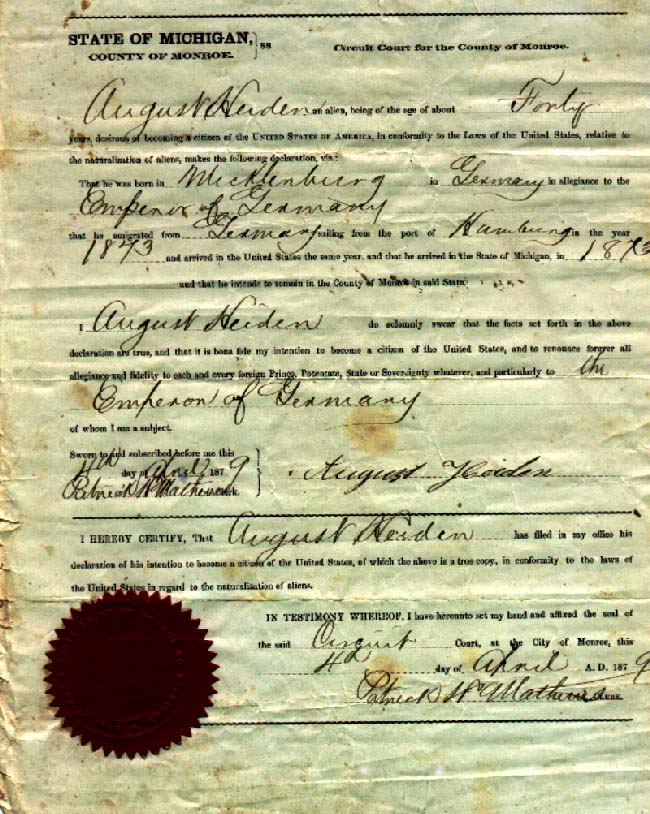 STATE OF MICHIGAN, } ss
COUNTY OF MONROE.
Circuit Court for the County of Monroe.
August Heiden an alien, being of the age of about Forty
years, desirous of becoming a citizen of the UNITED STATES OF AMERICA, in conformity to the Laws of the United States, relative to
the naturalization of aliens, makes the following declaration, viz:
That he was born in Mecklenburg in Germany in allegiance to the
Emperor of Germany
that he emigrated from Germany sailing from the port of Hamburg in the year
1873 and arrived in the United States the same year, and that he arrived in the State of Michigan, in 1873
and that he intends to remain in the County of Monroe in said State.
I August Heiden do solemnly swear that the facts set forth in the above
declaration are true, and that it is bona fide my intention to become a citizen of the United States, and to renounce forever all
allegiance and fidelity to each and every foreign Prince, Potentate, State or Sovereignty whatever, and particularly to the
Emperor of Germany
of whom I am a subject.
Sworn to and subscribed before me this
4th day of April 1879
Patrick H Mathews Clerk.
August Heiden
I HEREBY CERTIFY, That August Heiden has filed in my office his
declaration of his intention to become a citizen of the United States, of which the above is a true copy, in conformity to the laws of
the United States in regard to the naturalization of aliens.
IN TESTIMONY WHEREOF, I have hereunto set my hand and affixed the seal of
the said Circuit Court, at the City of Monroe, this
4th day of April A. D. 1879
Patrick H Mathews Clerk.